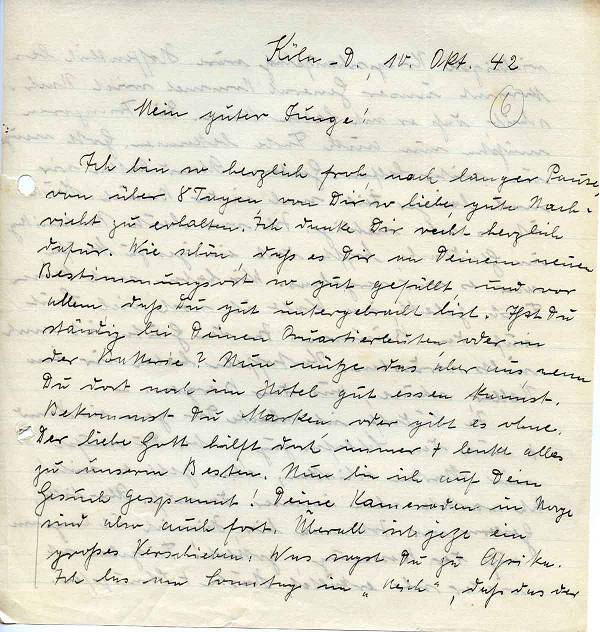 Köln-D., 10. Okt. 42
6
Mein guter Junge!
Ich bin so herzlich froh, nach langer Pause,
von über 8 Tagen von Dir so liebe, gute Nach-
richt zu erhalten. Ich danke Dir recht herzlich
dafür. Wie schön, daß es Dir an Deinem neuen
Bestimmungsort so gut gefällt und vor
allem, daß Du gut untergebracht bist. Ißt Du
ständig bei Deinen Quartierleuten oder in
der Batterie? Nun nütze das aber aus, wenn
Du dort noch im Hotel gut essen kannst.
Bekommst Du Marken oder gibt es ohne.
Der liebe Gott hilft doch immer + lenkt alles
zu unserm Besten. Nun bin ich auf Dein
Gesuch gespannt! Deine Kameraden in
sind also auch fort. Überall ist jetzt ein
großes Verschieben. Was sagst Du zu Afrika.
Ich las am Sonntag in „Reich", daß das der